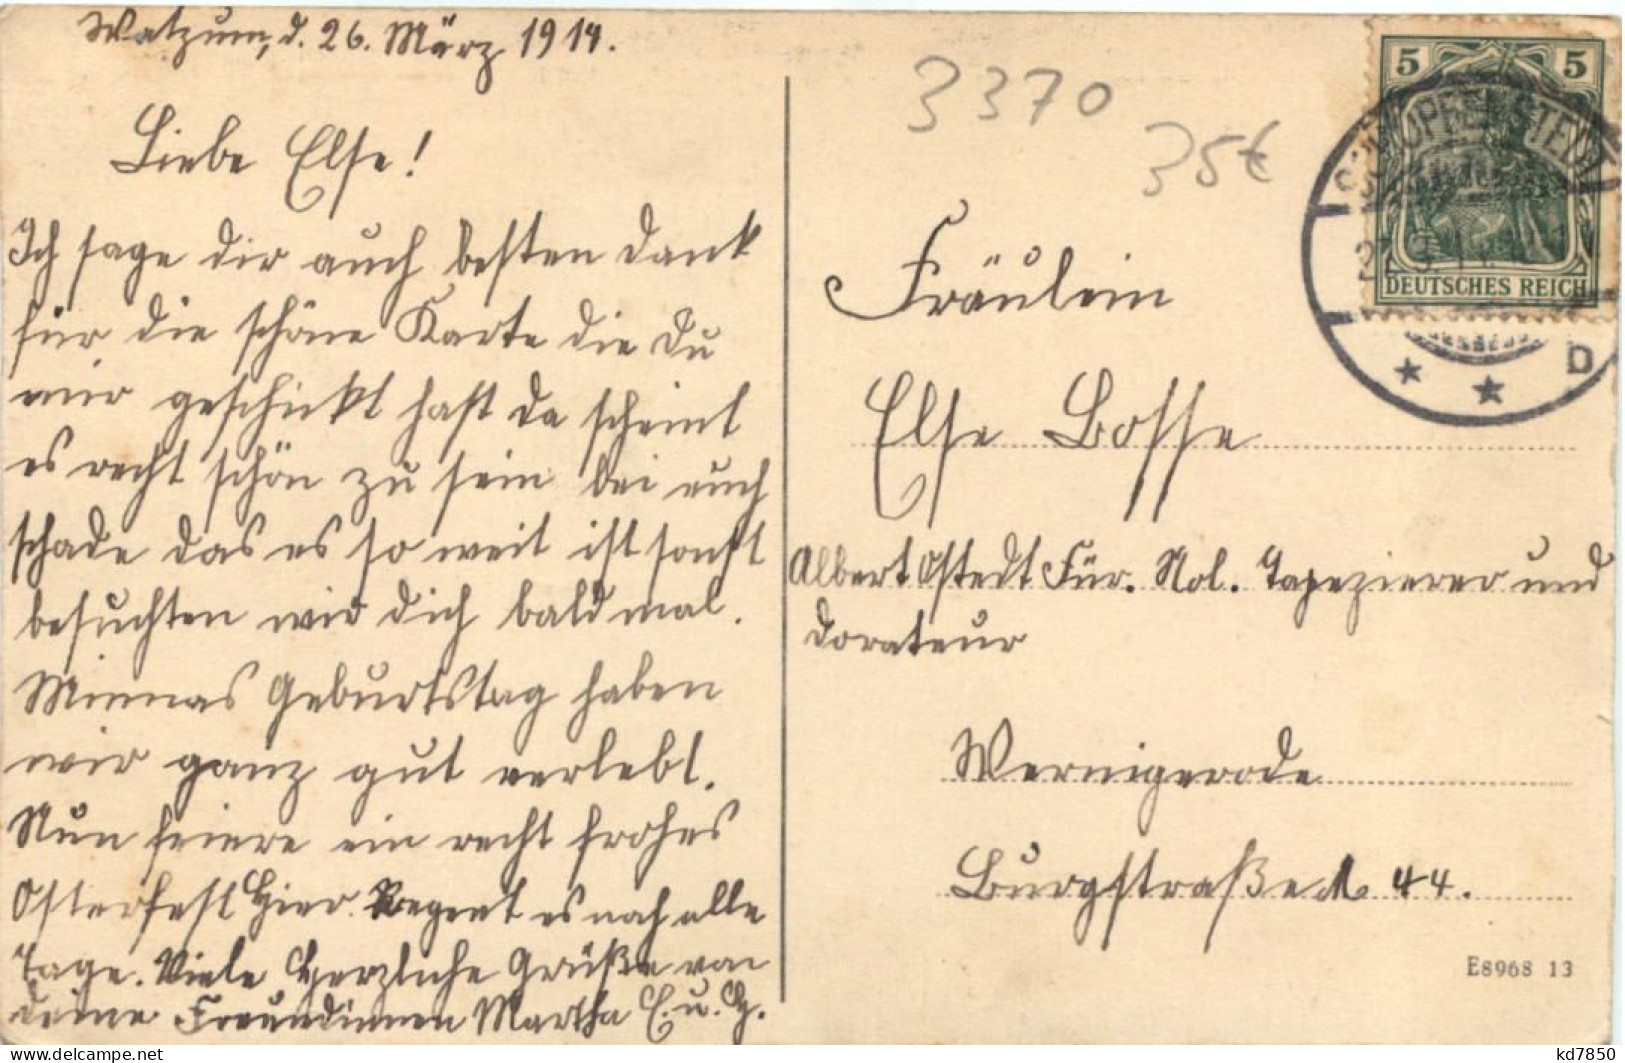 Watzum, d. 26. März 1914.
Liebe Else!
Ich sage dir auch besten Dank
für die schöne Karte die Du
mir geschickt hast da scheint
es recht schön zu sein bei euch
schade das es so weit ist sonst
besuchten wir dich bald mal.
Minnas Geburtstag haben
wir ganz gut verlebt.
Nun feiere ein recht frohes
Osterfest Hier Regent es noch alle
Tage. Viele Herzliche Grüße von
deine Freundinnen Martha E. u. H.
3370
35€
5 5
DEUTSCHES REICH
SCHÖPPENSTEDT
D
Fräulein
Else Bosse
Albert Ostedt Für. Nol. Tapezierer und
Dorateur
Wernigerode
Burgstraße 44.
E8968 13
www.delcampe.net
kd7850